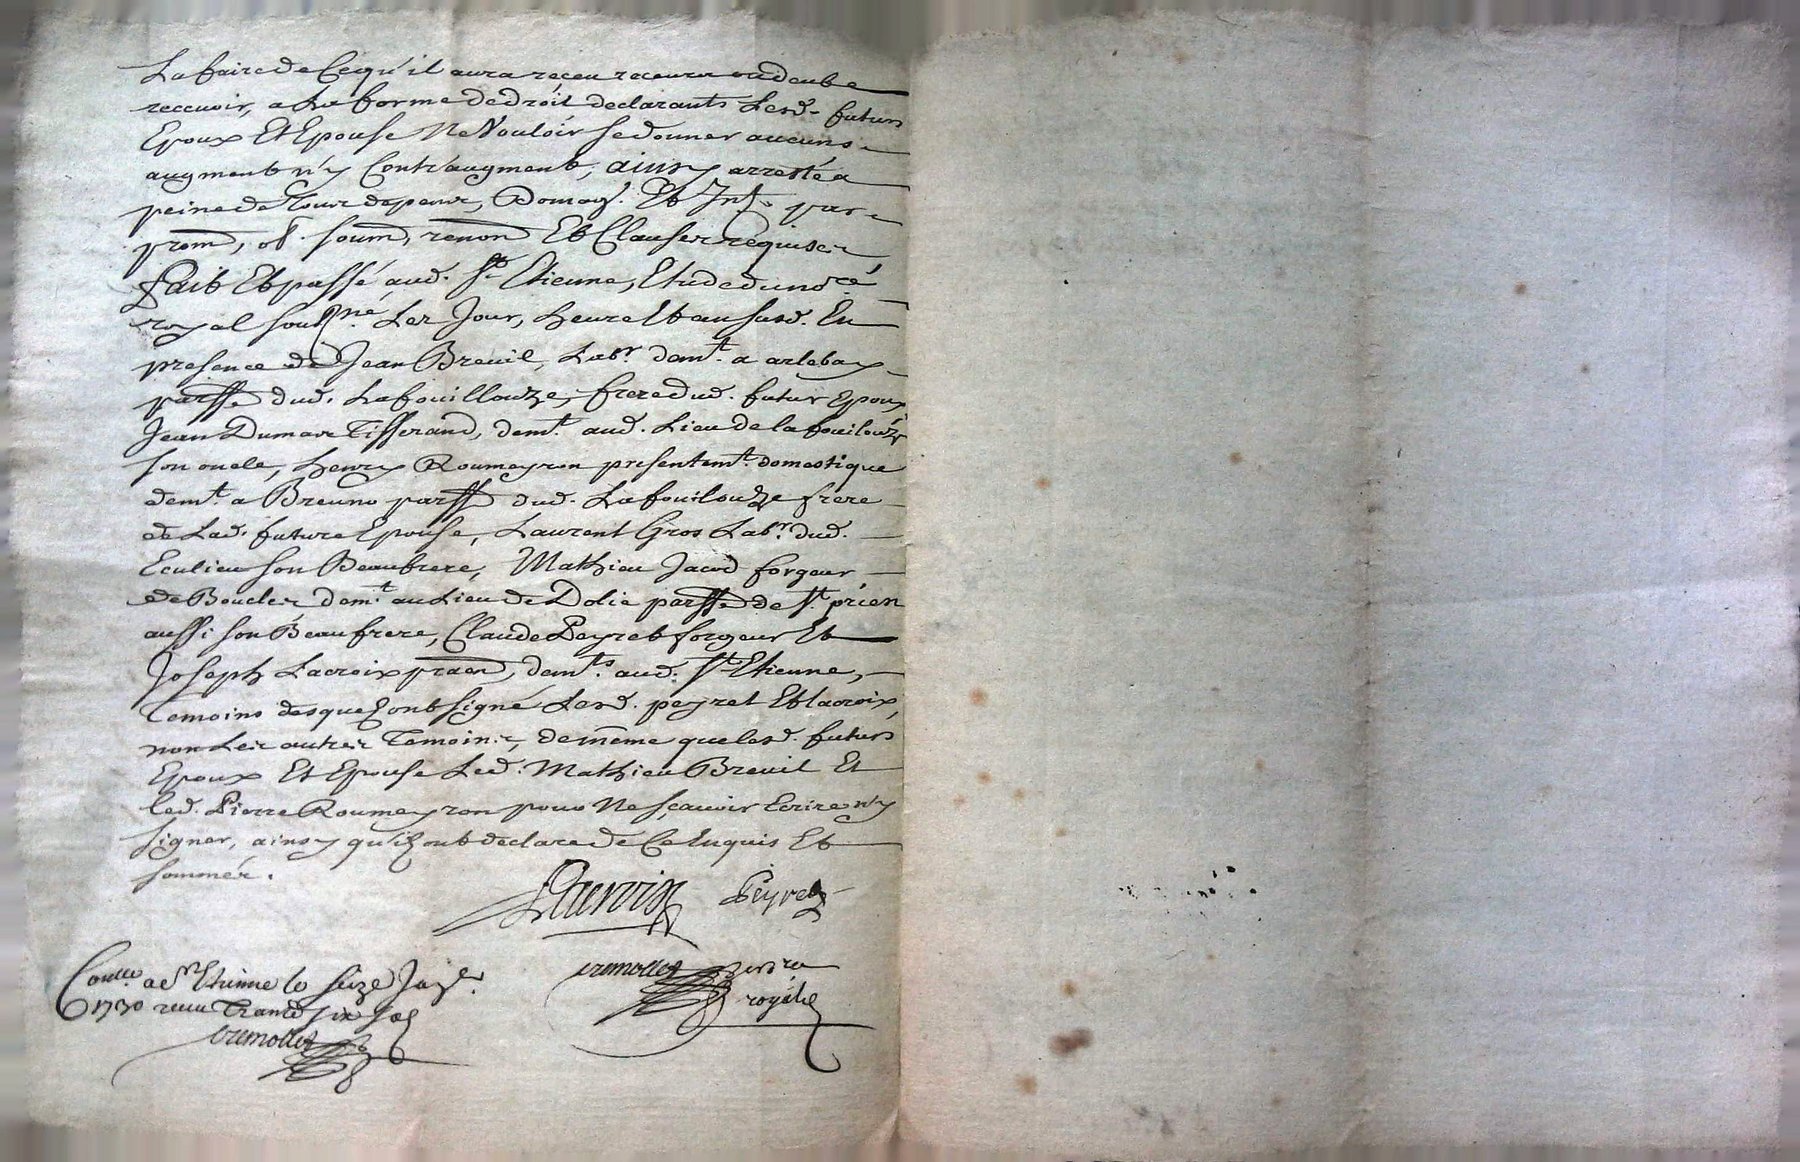 La faire de Ce qu'il aura reçeu receura ou deub e
recevoir, a La forme de droit declarants Lesd. futurs
Epoux Et Epouse Ne Vouloir se donner aucuns
augment n'y Contr'augment, ainsy arresté a
peine de Tous depens, Domag. Et Int. par
prom, ob. soum, renon Et Clauses requises
fait Et passé aud. St. Etienne, Etude du no.re
royal sousné. Les Jour, heure Et an susd. En
presence de Jean Breuil, Labr. demt. a arlebax
parsse dud. Lafouillouze, frere dud. futur Epoux
Jean Dumare Tisserand, demt. aud. Lieu de la fouilouze
son oncle, henry Roumeyron presentemt. domestique
demt. a Breuno parsse dud. Lafouilouze frere
de Lad. future Epouse, Laurent Gros Labr. dud.
Eculieu son Beaufrere, Mathieu Jacod forgeur
de Boucles demt. au Lieu de Dolie parsse de St. prien
aussi son Beaufrere, Claude Peyret forgeur Et
Joseph Lacroix praen, demts. aud. St. Etienne,
Temoins desquels ont signé Lesd. peyret Et lacroix,
non Les autres Temoins, de même que lesd. futurs
Epoux Et Epouse Led. Mathieu Breuil Et
led. Pierre Roumeyron pour Ne sçauoir Ecrire n'y
signer, ainsy qu'ils ont declare de Ce Enquis Et
sommés.
Lacroix Peyret
Tremollet
royal
Conlle. a St. Etienne le seize Janr.
1730 receu Trante six sols
Tremollet